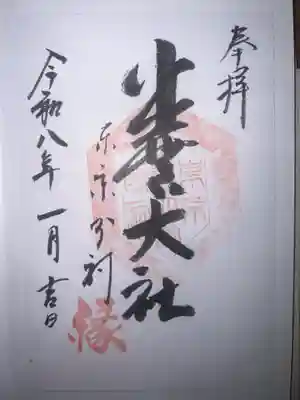 奉拝
出雲大社
東京分祠
縁
令和八年 一月 吉日